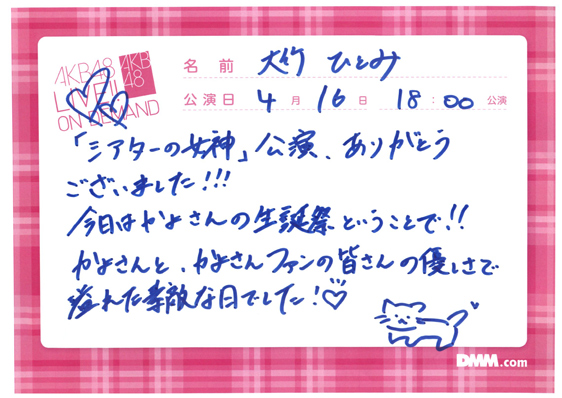 AKB48
LIVE!! ON DEMAND
AKB48
名前 大竹 ひとみ
公演日 4月16日 18:00公演
「シアターの女神」公演、ありがとう
ございました!!!
今日はかよさんの生誕祭ということで!!
かよさんと、かよさんファンの皆さんの優しさで
溢れた素敵な日でした!♡
DMM.com